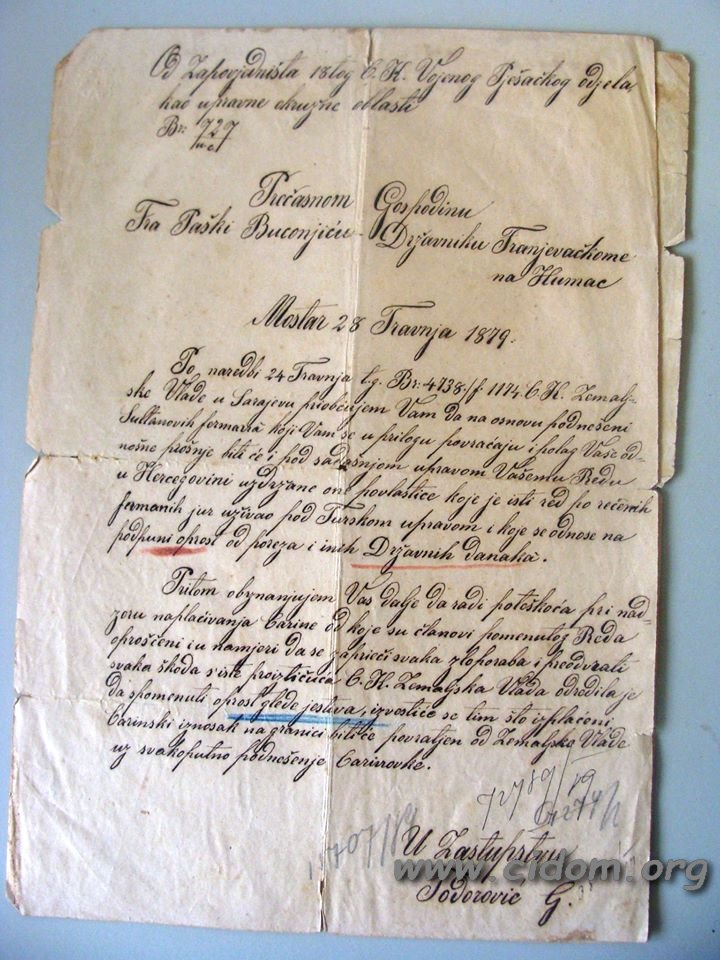 Od Zapovjedništa 18tog C. K. Vojenog Pješačkog odjela
kao upravne okružne oblasti
Br: 727
Prečasnom Gospodinu
Fra Paški Buconjiću - Državniku Franjevačkome
na Humac
Mostar 28 Travnja 1879.
Po naredbi 24 Travnja t.g. Br: 4738/f 1174 C. K. Zemalj-
ske Vlade u Sarajevu priobćujem Vam da na osnovu podnešeni
Sultanovih fermana koji Vam se u prilogu povraćaju i polag Vaše od-
nošne prošnje biti će i pod sadašnjom upravom Vašemu Redu
u Hercegovini uzdržane one povlastice koje je isti red po rečenih
fermanih jur uživao pod Turskom upravom i koje se odnose na
podpuni oprost od poreza i inih Državnih danaka.
Pritom obznanjujem Vas dalje da radi poteškoća pri nad-
zoru naplaćivanja Carine od koje su članovi pomenutog Reda
oprošćeni i u namjeri da se zaprieči svaka zloporaba i predvrati
svaka škoda s'iste proiztičuća C. K. Zemaljska Vlada odredila je
da spomenuti oprost glede jestiva, izvostiće se tim što izplaćeni
Carinski iznosak na granici bitiće povraćen od Zemaljske Vlade
uz svakoputno podnošenje Carinovke.
U Zastupstvu
Todorović G.
www.cidom.org